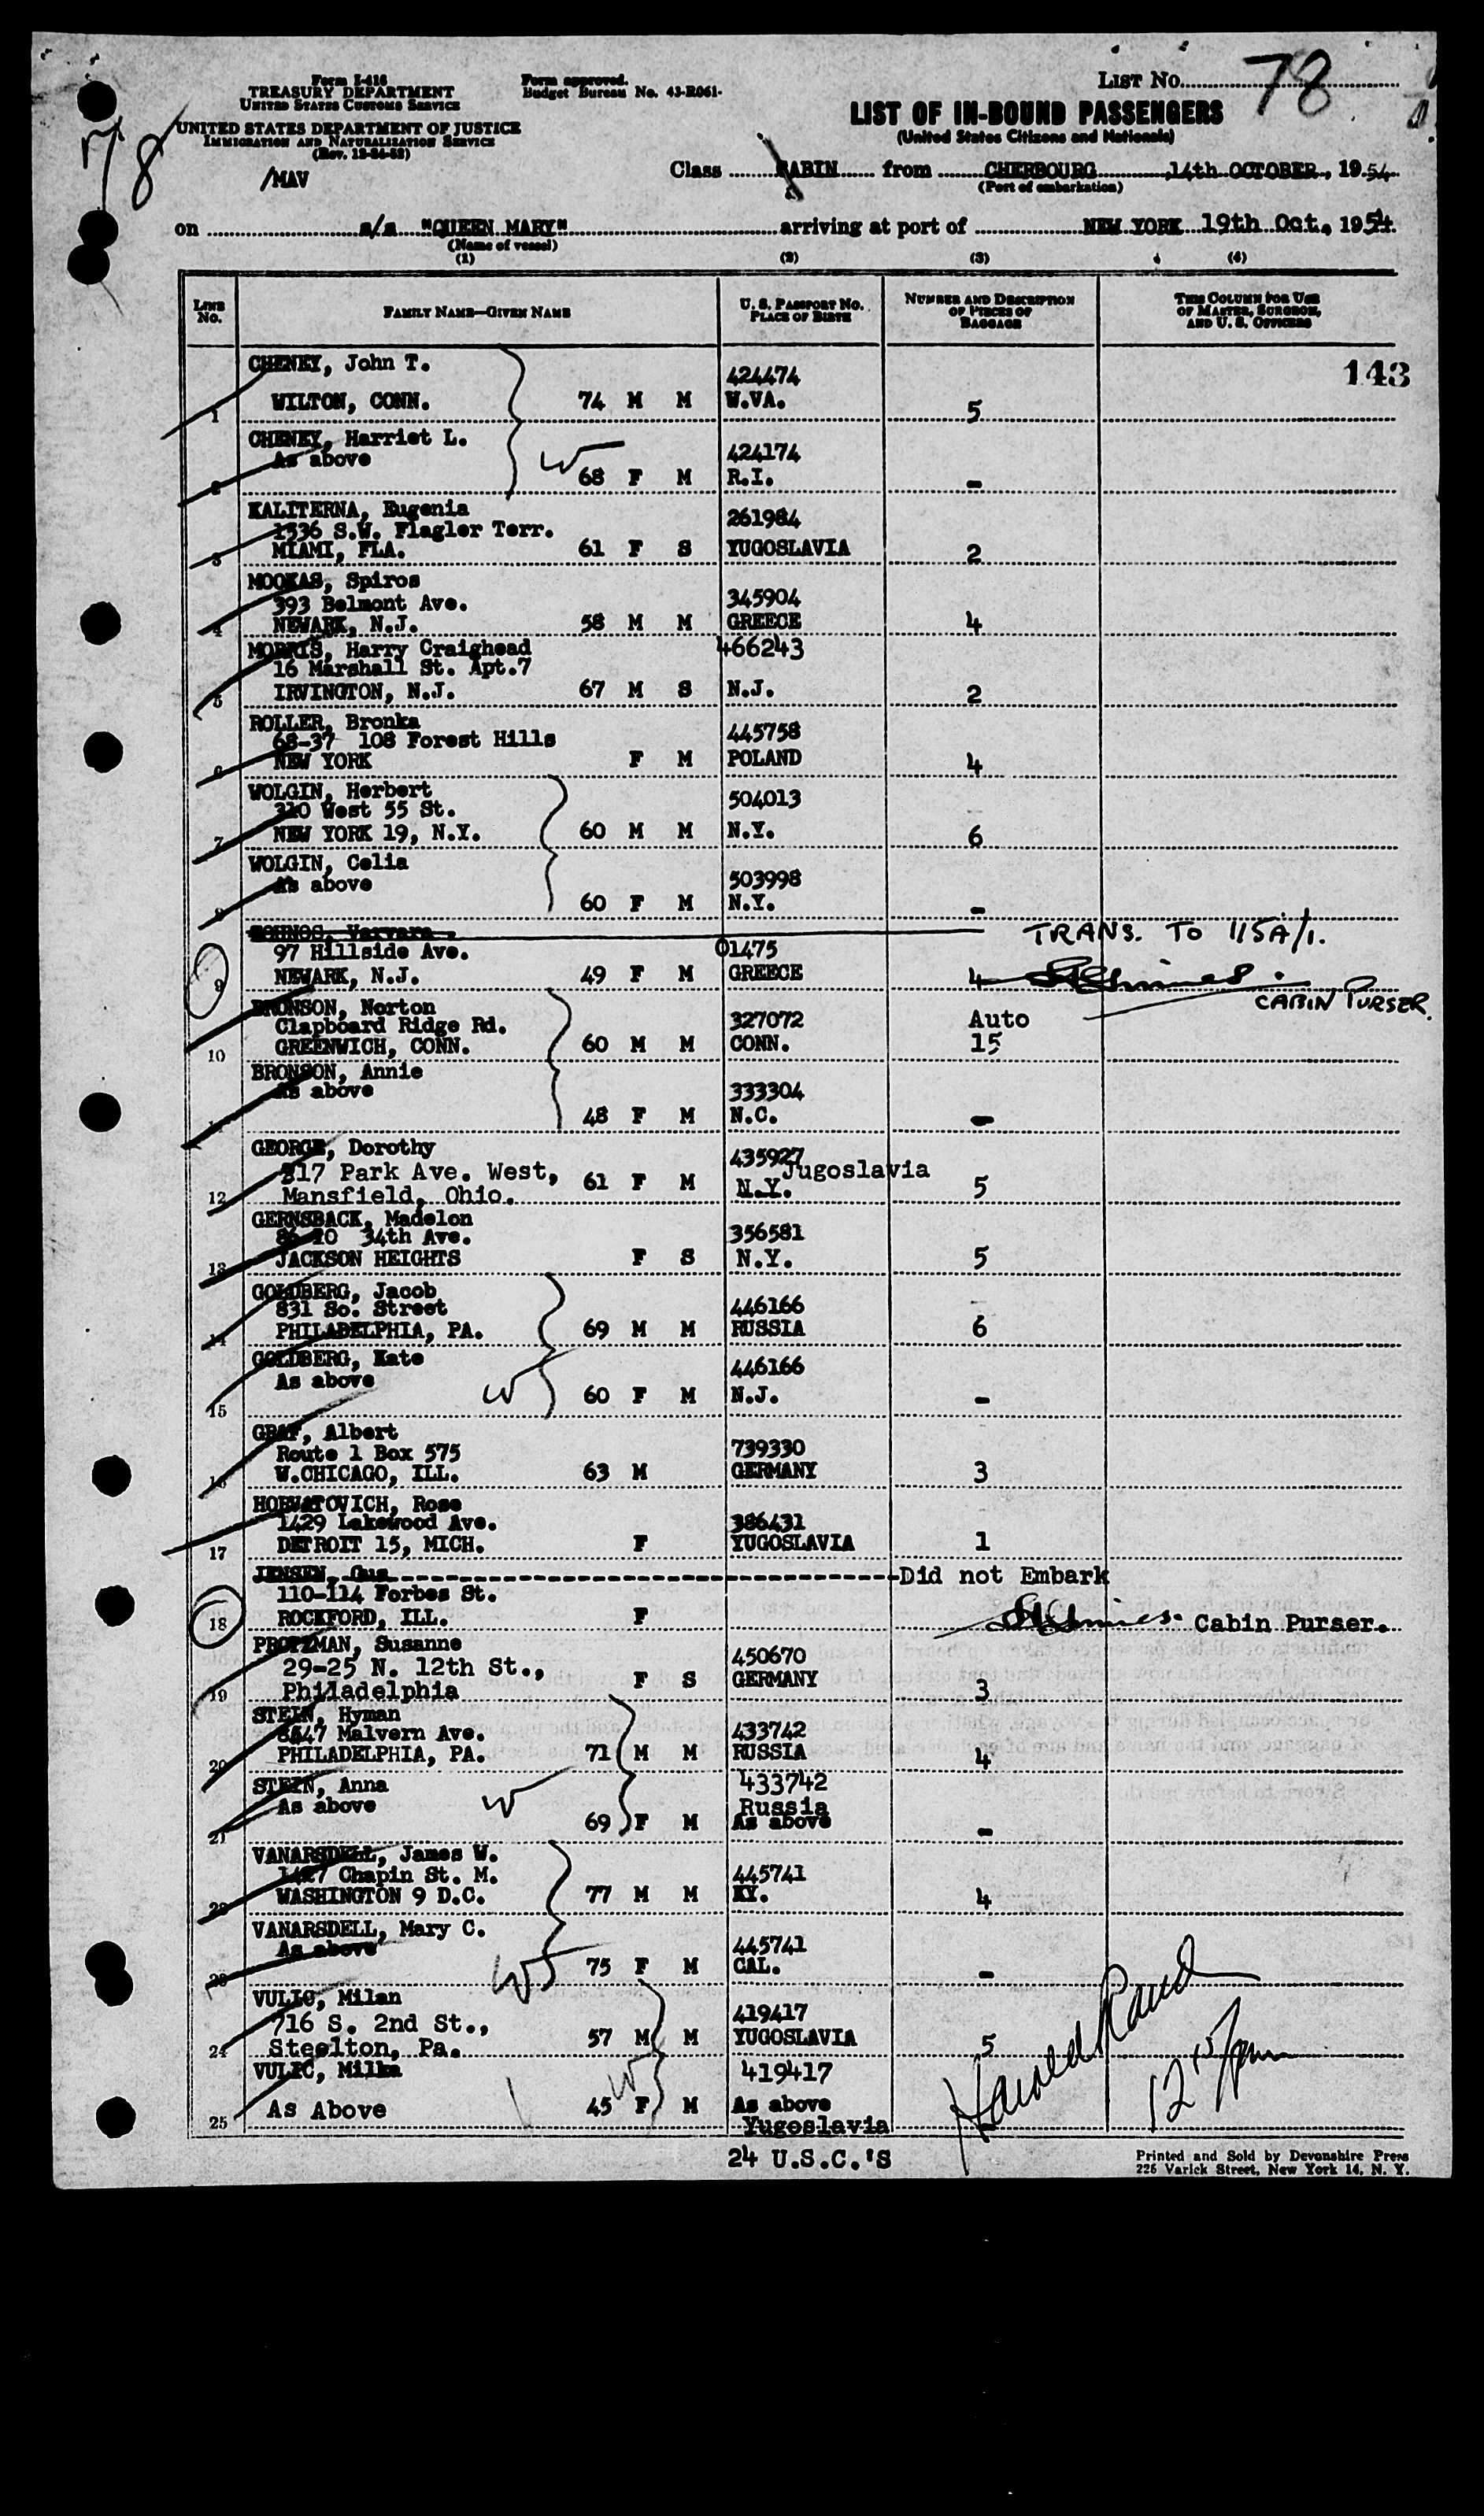 Form I-416
TREASURY DEPARTMENT
UNITED STATES CUSTOMS SERVICE
UNITED STATES DEPARTMENT OF JUSTICE
IMMIGRATION AND NATURALIZATION SERVICE
(Rev. 12-24-52)
/MAV
78
Form approved.
Budget Bureau No. 43-R061-
LIST No. 78
LIST OF IN-BOUND PASSENGERS
(United States Citizens and Nationals)
Class CABIN from CHERBOURG, 14th OCTOBER, 1954
(Port of embarkation)
on s/s "QUEEN MARY" arriving at port of NEW YORK 19th Oct., 1954.
(Name of vessel)
(1) (2) (3) (4)
LINE No. FAMILY NAME—GIVEN NAME U. S. PASSPORT No. PLACE OF BIRTH NUMBER AND DESCRIPTION OF PIECES OF BAGGAGE THIS COLUMN FOR USE OF MASTER, SURGEON, AND U. S. OFFICERS
143
CHENEY, John T. 424474
1 WILTON, CONN. 74 M M W.VA. 5
CHENEY, Harriet L. 424174
As above
2 68 F M R.I. -
KALITERNA, Eugenia 261984
1536 S.W. Flagler Terr.
3 MIAMI, FLA. 61 F S YUGOSLAVIA 2
MOOKAS, Spiros 345904
393 Belmont Ave.
4 NEWARK, N.J. 58 M M GREECE 4
MORRIS, Harry Craighead 466243
16 Marshall St. Apt.7
5 IRVINGTON, N.J. 67 M S N.J. 2
ROLLER, Bronka 445758
68-37 108 Forest Hills
6 NEW YORK F M POLAND 4
WOLGIN, Herbert 504013
310 West 55 St.
7 NEW YORK 19, N.Y. 60 M M N.Y. 6
WOLGIN, Celia 503998
As above
8 60 F M N.Y. -
Varvara TRANS. TO 115A/1.
97 Hillside Ave. 01475
9 NEWARK, N.J. 49 F M GREECE 4
CABIN PURSER.
BRONSON, Norton 327072 Auto
Clapboard Ridge Rd.
10 GREENWICH, CONN. 60 M M CONN. 15
BRONSON, Annie 333304
As above
48 F M N.C. -
GEORGE, Dorothy 435927
317 Park Ave. West, Jugoslavia
12 Mansfield, Ohio. 61 F M N.Y. 5
GERNSBACK, Madelon 356581
86-10 34th Ave.
13 JACKSON HEIGHTS F S N.Y. 5
GOLDBERG, Jacob 446166
831 So. Street
14 PHILADELPHIA, PA. 69 M M RUSSIA 6
GOLDBERG, Kate 446166
As above
15 W 60 F M N.J. -
GRAF, Albert 739330
Route 1 Box 575
16 W.CHICAGO, ILL. 63 M GERMANY 3
HORVATOVICH, Rose 386431
1429 Lakewood Ave.
17 DETROIT 15, MICH. F YUGOSLAVIA 1
JENSEN, Gus Did not Embark
110-114 Forbes St.
18 ROCKFORD, ILL. F Cabin Purser.
Susanne 450670
29-25 N. 12th St.,
19 Philadelphia F S GERMANY 3
STEIN, Hyman 433742
Malvern Ave.
20 PHILADELPHIA, PA. 71 M M RUSSIA 4
STEIN, Anna 433742
As above Russia
21 W 69 F M As above -
VANARSDELL, James W. 445741
1427 Chapin St. M.
22 WASHINGTON 9 D.C. 77 M M KY. 4
VANARSDELL, Mary C. 445741
As above
23 W 75 F M CAL. -
VULIC, Milan 419417
716 S. 2nd St.,
24 Steelton, Pa. 57 M M YUGOSLAVIA 5
VULIC, Milka 419417
25 As Above W 45 F M As above
Yugoslavia
Harold Rand
24 U.S.C.'S
Printed and Sold by Devonshire Press
225 Varick Street, New York 14, N. Y.